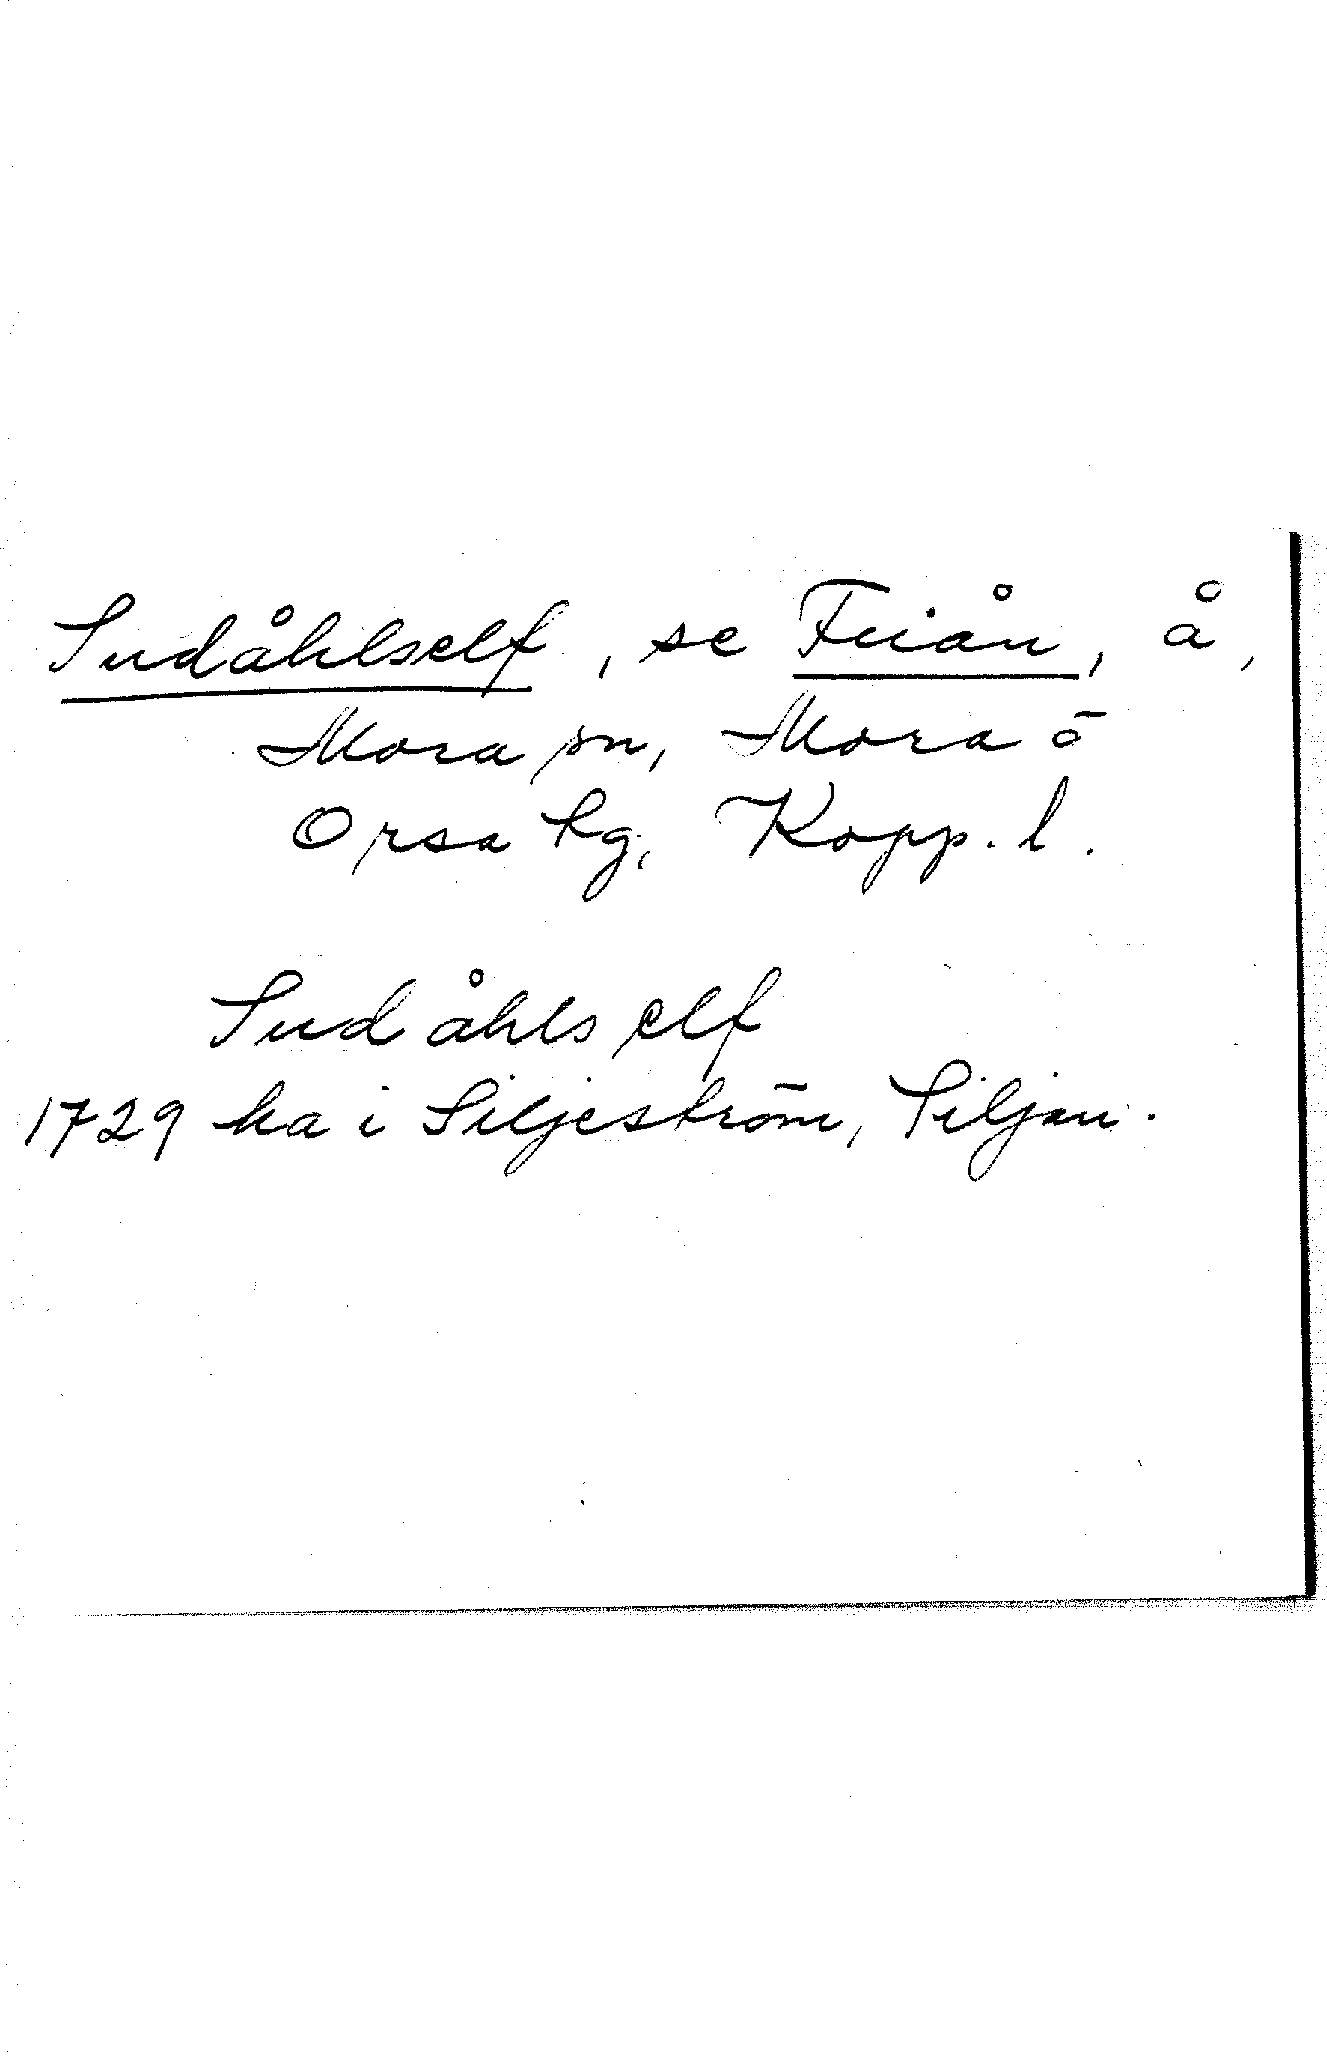 Sudåhlself, se Fuiån, å,
Mora sn, Mora o
Orsa tg, Kopp. l.
Sudåhlself
1729 ka i Siljeström, Siljan.